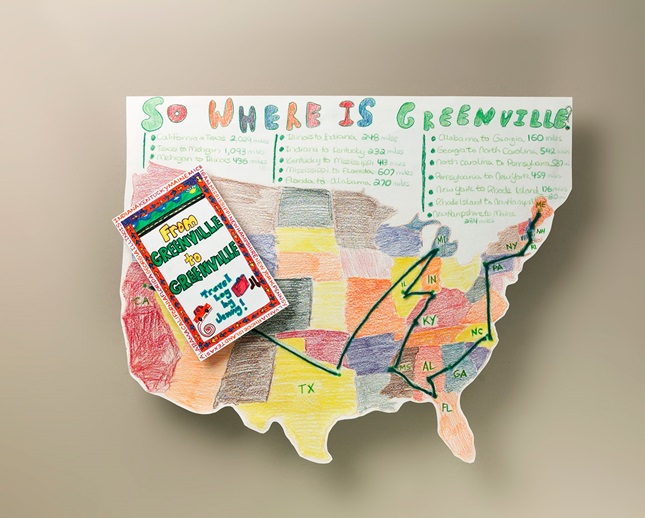 SO WHERE IS GREENVILLE
California to Texas 2,024 miles
Texas to Michigan 1,093 miles
Michigan to Illinois 436 miles
Illinois to Indiana 248 miles
Indiana to Kentucky 232 miles
Kentucky to Mississippi miles
Mississippi to Florida 607 miles
Florida to Alabama 270 miles
Alabama to Georgia 160 miles
Georgia to North Carolina 542 miles
North Carolina to Pennsylvania
Pennsylvania to New York 459 miles
New York to Rhode Island 176 miles
Rhode Island to New Hampshire
New Hampshire to Maine
miles
From
GREENVILLE
to
GREENVILLE
Travel
Log
by
Jenny!
CA
TX
MI
IL
IN
KY
MS
AL
FL
GA
NC
PA
NY
RI
NH
ME